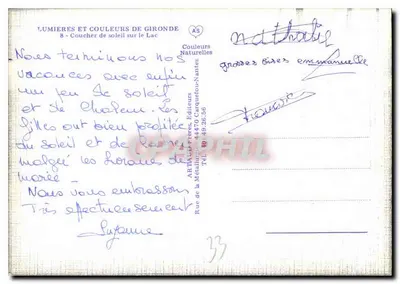 LUMIERES ET COULEURS DE GIRONDE
8 - Coucher de soleil sur le Lac
Nous terminons nos
vacances avec enfin
un peu de soleil
et de chaleur. Les
filles ont bien profitées
du soleil et de
malgré les horaires de
marée -
Nous vous embrassons
Très affectueusement
Suzanne
AS
Couleurs
Naturelles
Nathalie
grosses bises emmanuelle
ARTAUD Frères, Editeurs
Rue de la Métallurgie - 44470 Carquefou-Nantes
33